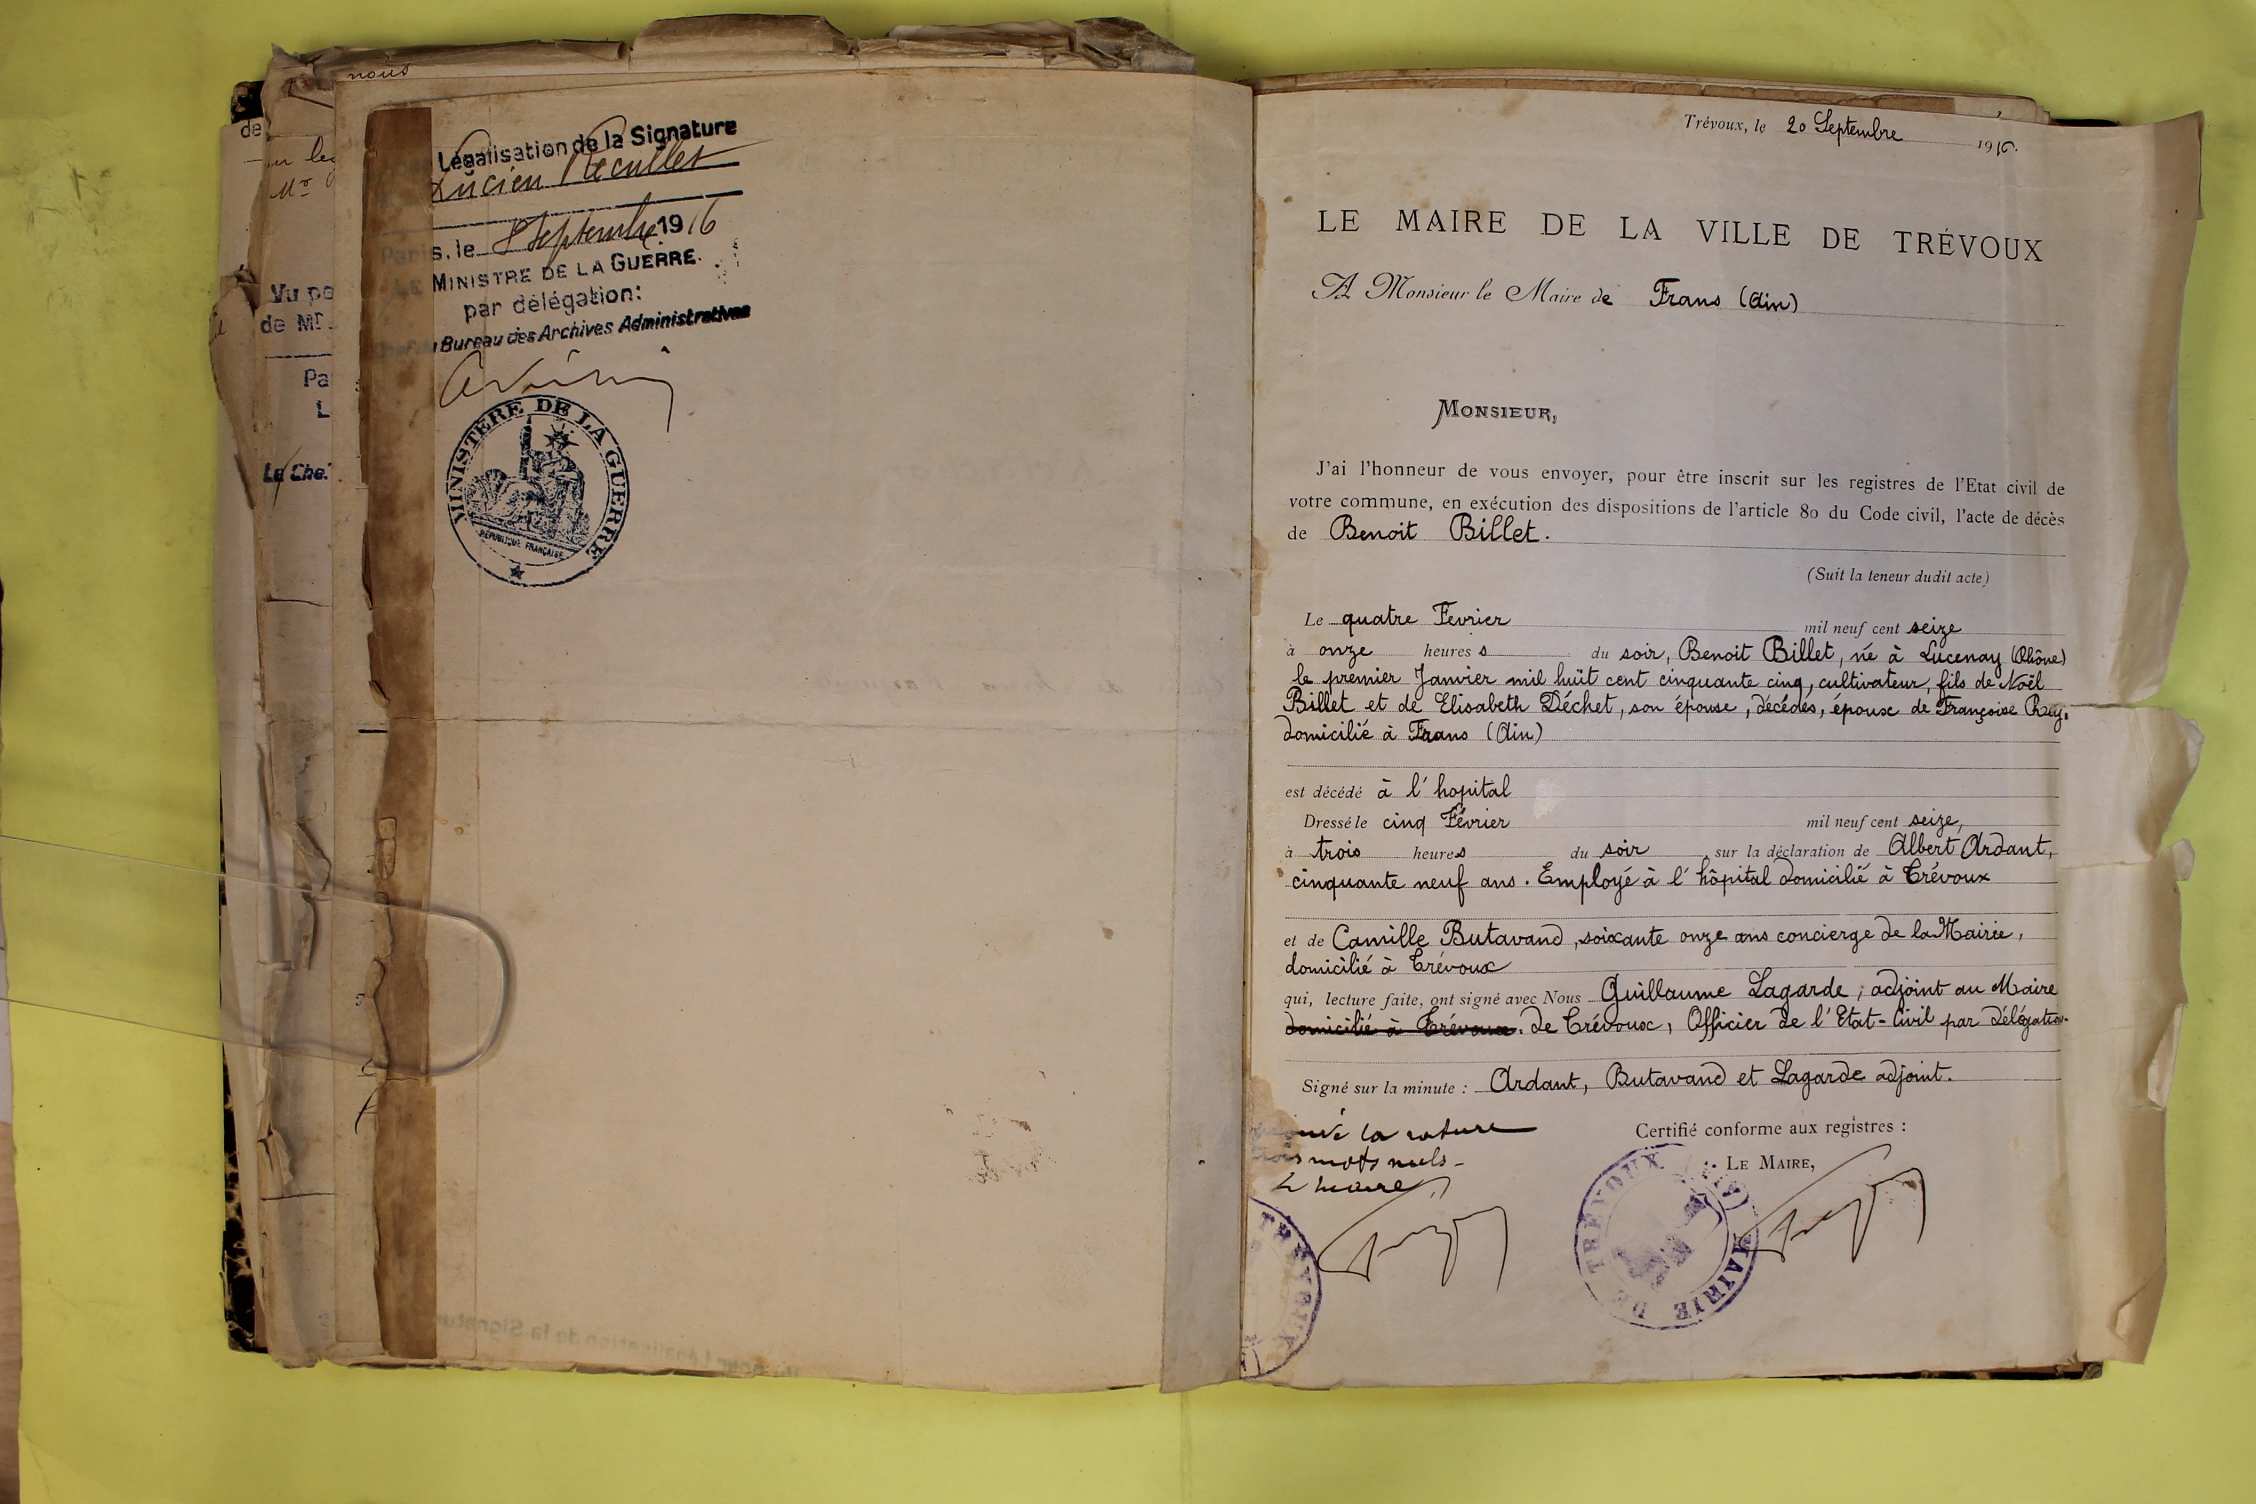 nous
de
Mr
Vu po
de Mr.
Pa
L
Le Che
Légalisation de la Signature
Lucien Récullet
Paris, le 8 Septembre 1916
LE MINISTRE DE LA GUERRE.
par délégation:
Chef du Bureau des Archives Administratives
MINISTÈRE DE LA GUERRE
RÉPUBLIQUE FRANÇAISE
Trévoux, le 20 Septembre 1916.
LE MAIRE DE LA VILLE DE TRÉVOUX
A Monsieur le Maire de Frans (Ain)
MONSIEUR,
J'ai l'honneur de vous envoyer, pour être inscrit sur les registres de l'Etat civil de
votre commune, en exécution des dispositions de l'article 80 du Code civil, l'acte de décès
de Benoit Billet.
(Suit la teneur dudit acte)
Le quatre Fevrier mil neuf cent seize
à onze heures du soir, Benoit Billet, né à Lucenay (Rhône)
le premier Janvier mil huit cent cinquante cinq, cultivateur, fils de Noël
Billet et de Elisabeth Déchet, son épouse, décédés, époux de Françoise Ruy,
domicilié à Frans (Ain)
est décédé à l'hopital
Dressé le cinq Février mil neuf cent seize,
à trois heures du soir sur la déclaration de Albert Ardant,
cinquante neuf ans. Employé à l'hôpital domicilié à Trévoux
et de Camille Butavand, soixante onze ans concierge de la Mairie,
domicilié à Trévoux
qui, lecture faite, ont signé avec Nous Guillaume Lagarde, adjoint au Maire
domicilié à Trévoux. de Trévoux, Officier de l'Etat-Civil par délégation.
Signé sur la minute : Ardant, Butavand et Lagarde adjoint.
la rature
trois mots nuls
Le maire
Certifié conforme aux registres :
LE MAIRE,
MAIRIE DE TRÉVOUX (AIN)
TRÉVOUX